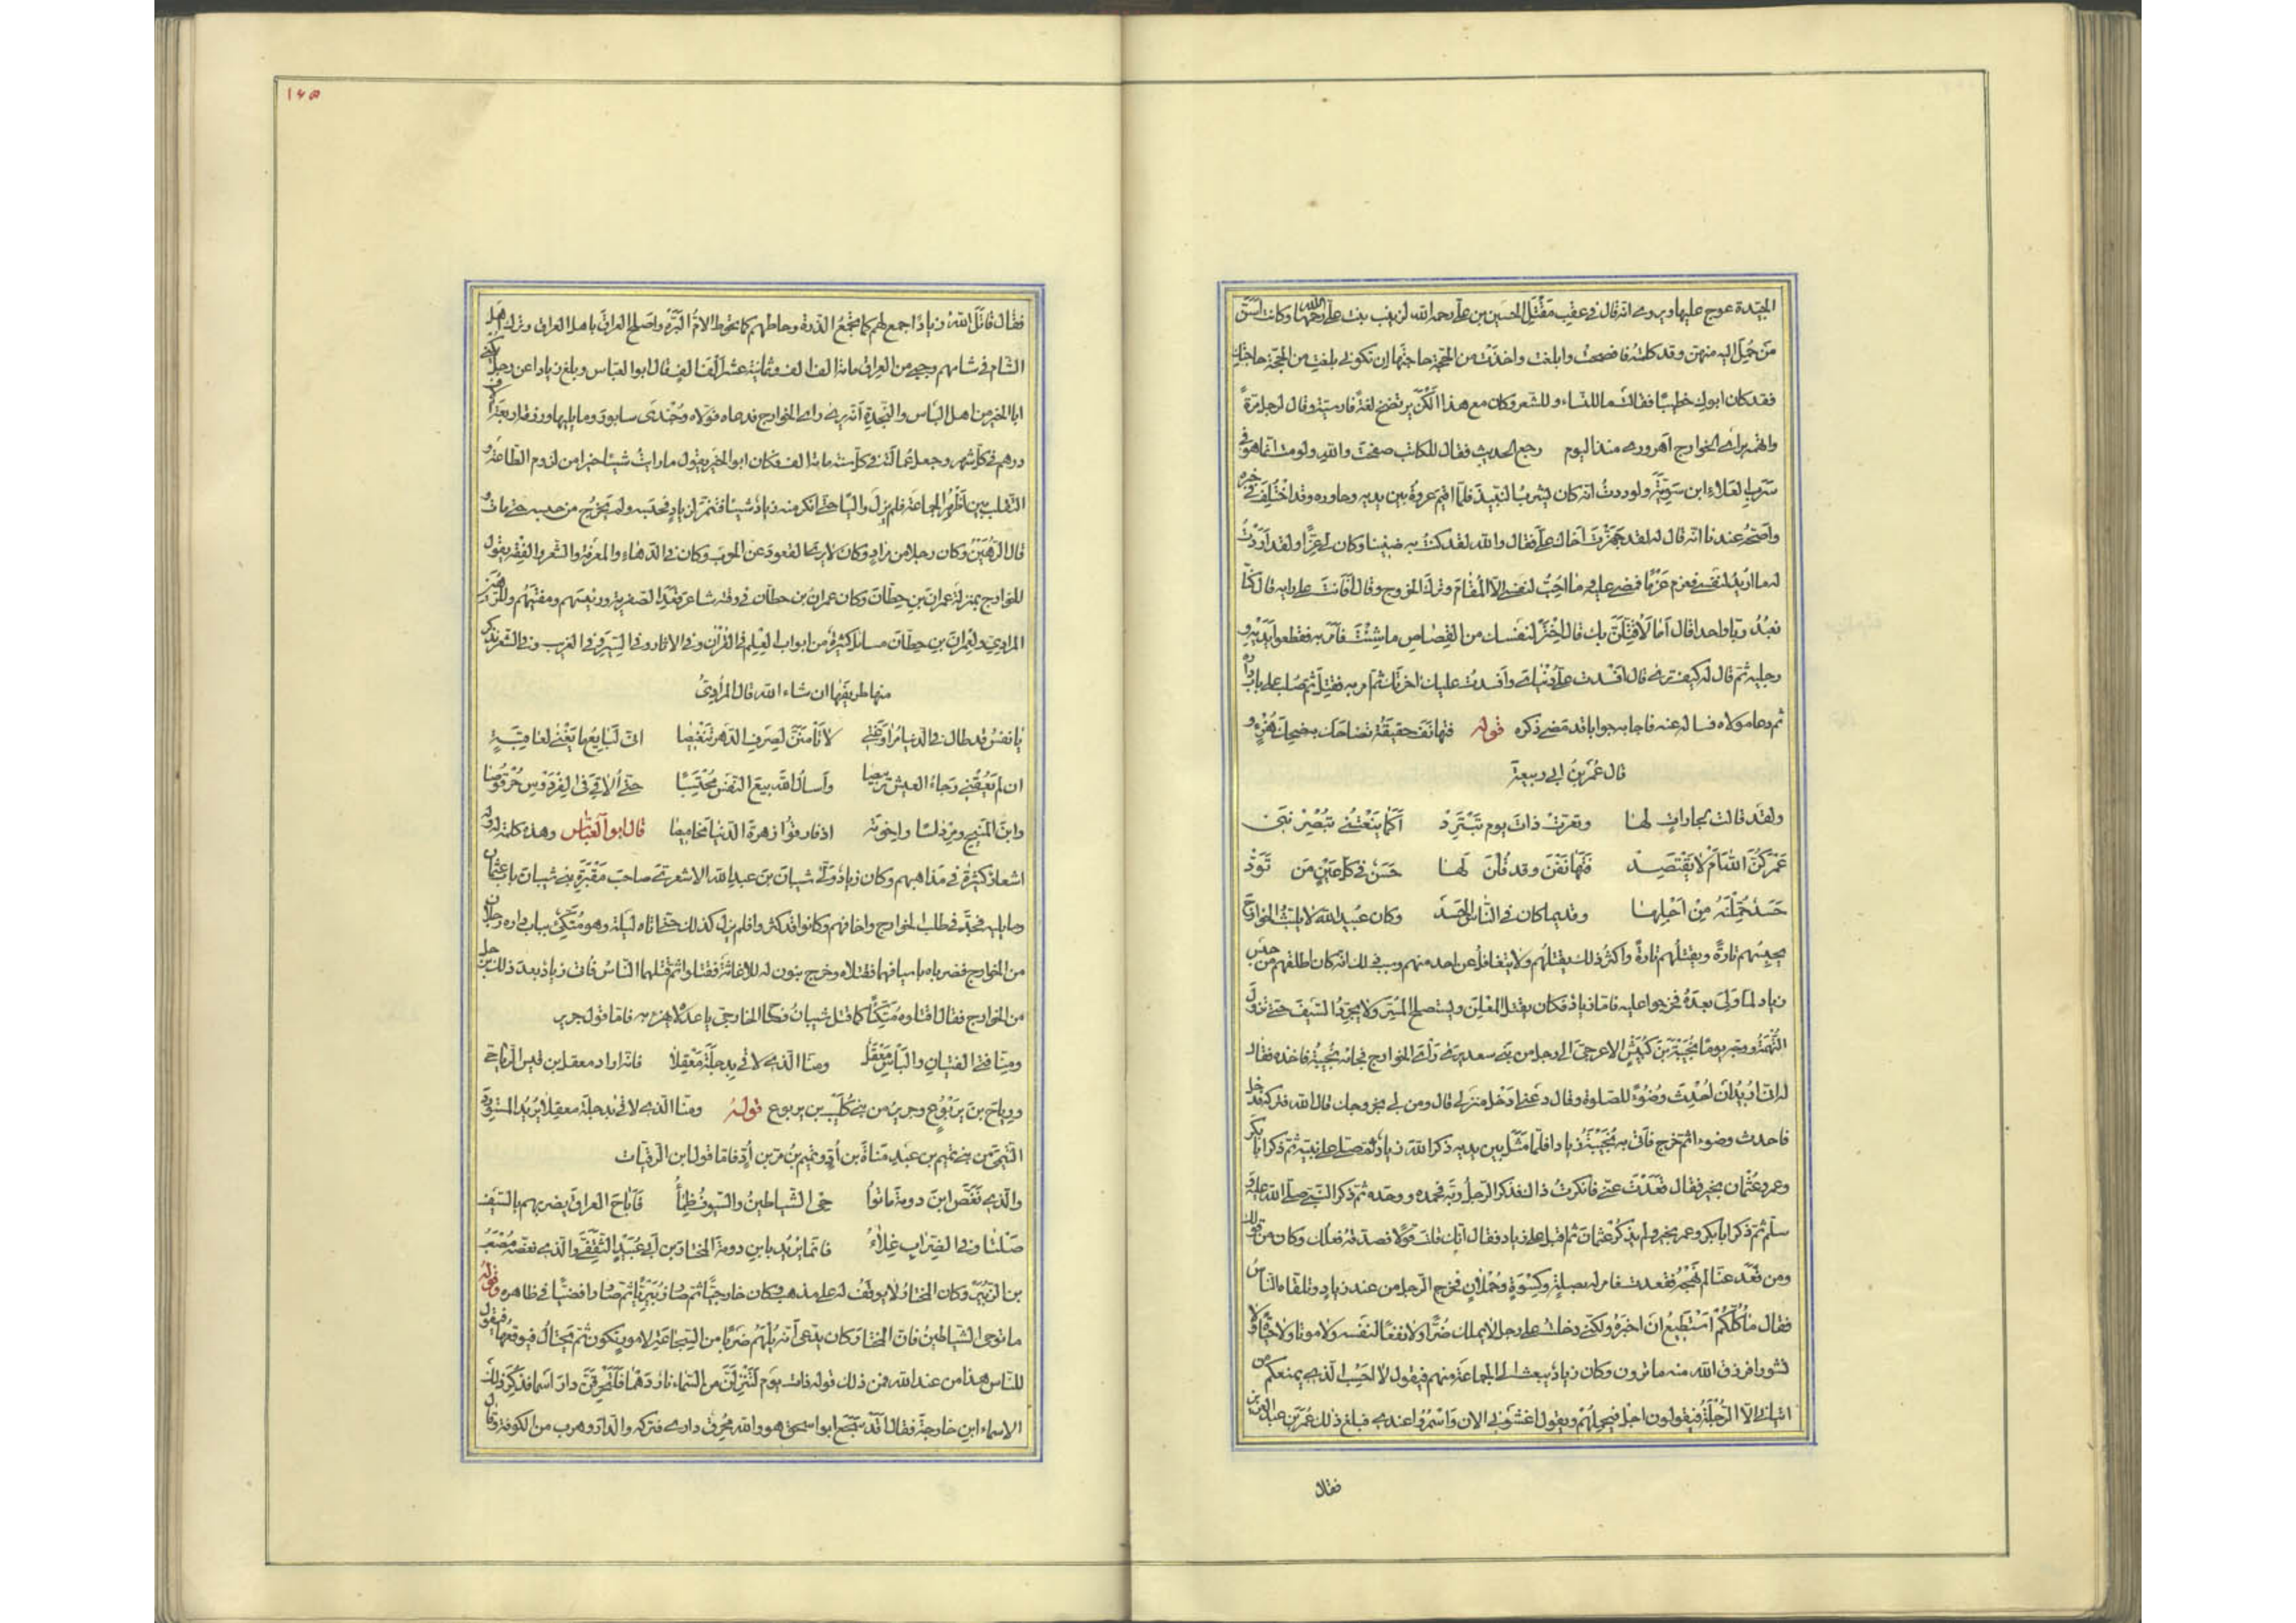 الجيّدة عوج عليها ويروى انه قال فى عقب مقتل الحسين بن على رحمه الله لزينب بنت على رحمها الله وكانت اسنّ
من حمل اليه منهن وقد كلمته فافصحت وابلغت واخذت من الحجة حاجتها ان تكونى بلغت من الحجة حاجتك
فقد كان ابوك خطيبا فقالت ما للنساء وللشعر وكان مع هذا الكن يرتضخ لغة فارسية وقال لرجل مرة
واتهم برأى الخوارج اهرورى منذ اليوم رجع الحديث فقال للكاتب صفحت والله ولومت انما هو فى
سرب العلاء ابن سوية ولوددت انه كان يشرب النبيذ فلما اقيم عروة بين يديه وحاوره وقد اختلف فى خبره
واصحه عندنا انه قال له لقد جهزت اخاك على فقال والله لقد كنت به ضنينا وكان لى عزا ولقد اردت
له ما اريد لنفسى فعزم عزما فمضى عليه وما احب لنفسى الا المقام وترك الخروج وقال له أفأنت على رايه قال كنا
نعبد ربا واحدا قال أما لأقتلنك قال اختر لنفسك من القصاص ما شئت فأمر به فقطعوا يديه و
رجليه ثم قال له كيف ترى قال افسدت على دنياى وأفسدت عليك اخرتك ثم امر به فقتل ثم صلب على باب داره
ثم دعا مولاه فساله عنه فاجابه جوابا قد مضى ذكره قوله فتهانف حقيقة تضاحك به ضحك هزء و
قال عمر بن ابى ربيعة
ولقد قالت لجارات لها وتعرت ذات يوم تبترد أكما ينعتنى تبصرننى
عمركن الله ام لا يقتصد فتهانفن وقد قلن لها حسن فى كل عين من تود
حسد حملنه من اجلها وقديما كان فى الناس الحسد وكان عبيد الله لا يلبث الخوارج
يحبسهم تارة ويقتلهم تارة واكثر ذلك يقتلهم ولا يتغافل عن احد منهم وسبب ذلك انه كان اطلقهم من حبس
زياد لما ولى بعده فخرجوا عليه فاما زياد فكان يقتل المعلن ويستصلح المسر ولا يجرد السيف حتى تزول
التهمة ووجه يوما بحيبة بن كبيش الاعرجى الى رجل من بنى سعد يرى رأى الخوارج فجاءه بحيبة فاخذه فقال
له انى اريد ان احدث وضوءا للصلوة وقال دعنى ادخل منزلى قال ومن لى بخروجك قال الله فتركه فدخل
فاحدث وضوءا ثم خرج فأتى به بحيبة زيادا فلما مثل بين يديه ذكر الله زياد ثم صلى على نبيه ثم ذكر ابا بكر
وعمر وعثمان بخير فقال قعدت عنى فانكرت ذلك فذكر الرجل ربه فحمده ووحده ثم ذكر النبى صلى الله عليه و
سلم ثم ذكر ابا بكر وعمر بخير ولم يذكر عثمان ثم اقبل على زياد فقال انك قلت قولا فصدقه فعلك وكان من قولك
ومن قعد عنا لم نهجه فقعدت فامر له بصلة وكسوة وحملان فخرج الرجل من عند زياد وتلقاه الناس
فقال ما كلكم استطيع ان اخبره ولكنى دخلت على رجل لا يملك ضرا ولا نفعا لنفسه ولا موتا ولا حياة ولا
نشورا فرزق الله منه ما ترون وكان زياد يبعث الى الجماعة منهم فيقول لا احسب الذى يمنعكم من
اتيانى الا الرجلة فيقولون اجل فيحملهم ويقول اغشونى الان واسمروا عندى فبلغ ذلك عمر بن عبد العزيز
فقال
١٤٥
فقال قاتل الله زيادا جمع لهم كما تجمع الذرة وحاطهم كما تحوط الام البرة واصلح العراق باهل العراق وترك اهل
الشام فى شامهم وجبى من العراق مائة الف الف وثمانية عشر الف الف قال ابو العباس وبلغ زيادا عن رجل يكنى
ابا الخير من اهل البأس والنجدة أنه يرى راى الخوارج فدعاه فولاه وجندى سابور وما يليها ورزقه اربعة الاف
درهم فى كل شهر وجعل عمالته فى كل سنة مائة الف فكان ابو الخير يقول ما رايت شيئا خيرا من لزوم الطاعة و
التقلب بين أظهر الجماعة فلم يزل واليا حتى انكر منه زياد شيئا فتنمر لزياد فحبسه ولم يخرج من حبسه حتى مات
قال الرهين وكان رجلا من مراد وكان لا يرى القعود عن الحرب وكان فى الدهاء والمعرفة والشعر والفقه بقول
الخوارج بمنزلة عمران بن حطان وكان عمران بن حطان فى وقته شاعر قعد الصفرية ورئيسهم ومفتيهم وللرهين
المرادى ولعمران بن حطان مسائل كثيرة من ابواب العلم فى القرآن وفى الاثار وفى السير وفى الغريب وفى الشعر نذكر
منها طريفها ان شاء الله قال المرادى
يا نفس قد طال فى الدنيا مراوغتى لا تأمنن لصرف الدهر تنغيصا انى لبايع ما يفنى لباقية
ان لم يعقنى رجاء العيش تربيصا وأسأل الله بيع النفس محتسبا حتى ألاقى فى الفردوس حرقوصا
وابن المنيح ومرداسا واخوته اذ فارقوا زهرة الدنيا مخاميصا قال ابو العباس وهذه كلمة له وله
اشعار كثيرة فى مذاهبهم وكان زياد ولى شيبان بن عبد الله الاشعرى صاحب مقبرة بنى شيبان باب عثمان
وما يليه فجد فى طلب الخوارج واخافهم وكانوا قد كثروا فلم يزل كذلك حتى اتاه ليلة وهو متكئ بباب داره رجلان
من الخوارج فضرباه باسيافهما فقتلاه وخرج بنون له للاغاثة فقتلوا ثم قتلهما الناس فأتى زياد بعد ذلك برجل
من الخوارج فقال اقتلوه متكئا كما قتل شيبان متكئا فصاح الخارجى يا عدلاه يهزء به فاما قول جرير
ومنا فتى الفتيان والبأس معقل ومنا الذى لاقى بدجلة معقلا فانه اراد معقل بن قيس الرياحى
ورياح بن يربوع وجرير من بنى كليب بن يربوع قوله ومنا الذى لاقى بدجلة معقلا يريد المستورد
التيمى من بنى تيم بن عبد مناة بن أد وتميم بن مر بن أد فاما قول ابن الرقيات
والذى نغص ابن دومة ما توا حى الشياطين والسيوف ظماء فأباح العراق يضربهم بالسيف
صلتا وفى الضراب غلاء فانما يريد بابن دومة المختار بن ابى عبيد الثقفى والذى نغصه مصعب
بن الزبير وكان المختار لا يوقف له على مذهب فكان خارجيا ثم صار زبيريا ثم صار رافضيا فى ظاهره وقوله
ما توحى الشياطين فان المختار كان يدعى أنه يلهم ضربا من السجاعة لامور تكون ثم يحتال فيوقعها فيقول
للناس هذا من عند الله فمن ذلك قوله ذات يوم لتنزلن من السماء نار دهما فلتحرقن دار اسما فذكر ذلك
لاسماء ابن خارجة فقال أقد سجع ابو اسحق هو والله محرق دارى فتركه والدار وهرب من الكوفة وقال